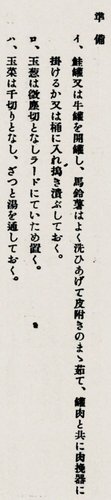 準備
イ、鮭罐又は牛罐を開罐し、馬鈴薯はよく洗ひあげて皮附きのまゝ茹で、罐肉と共に肉挽器に
掛けるか又は桶に入れ搗き潰ぶしておく。
ロ、玉葱は微塵切となしラードにていため置く。
ハ、玉菜は千切りとなし、ざつと湯を通しておく。